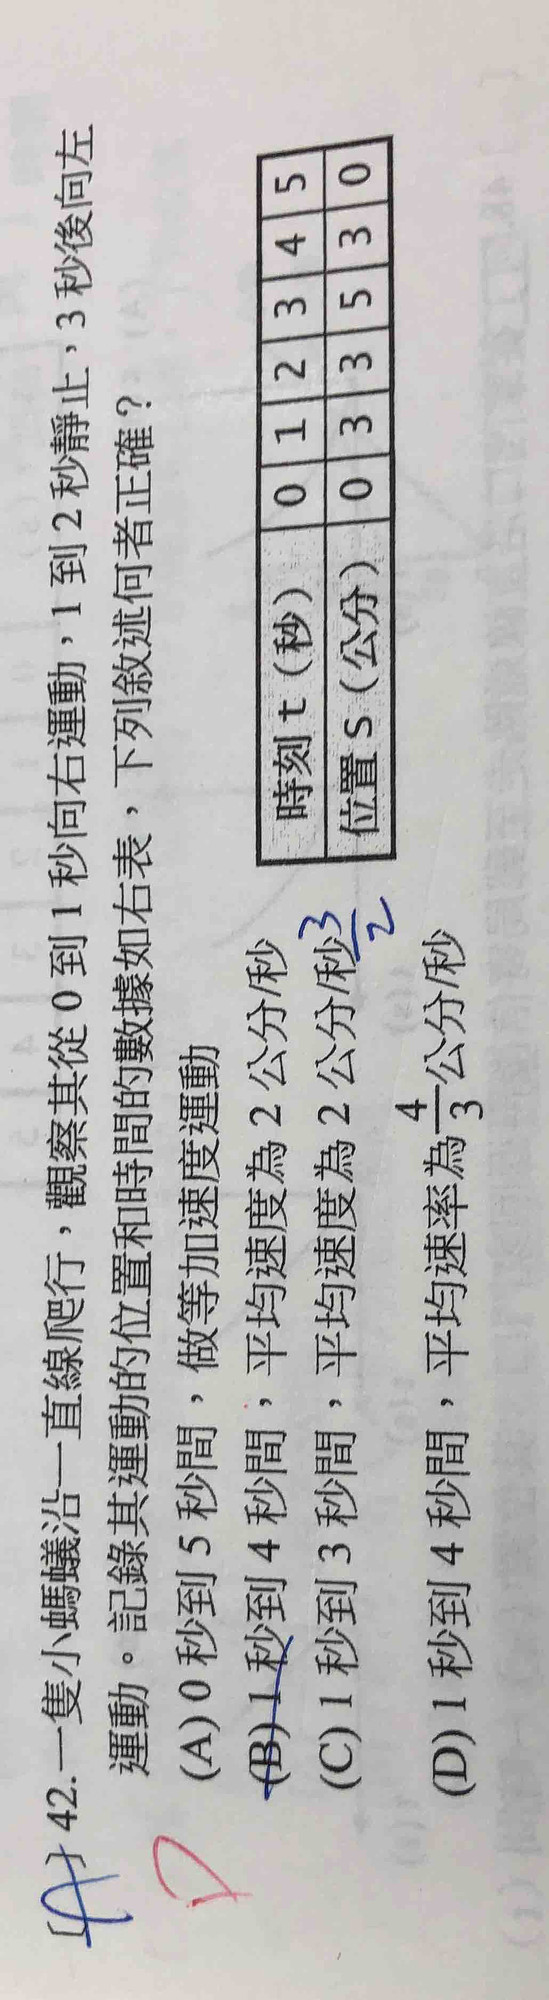 (A) 42.一隻小螞蟻沿一直線爬行，觀察其從 0 到 1 秒向右運動，1 到 2 秒靜止，3 秒後向左
運動。記錄其運動的位置和時間的數據如右表，下列敘述何者正確？
D
(A) 0 秒到 5 秒間，做等加速度運動
(B) 1 秒到 4 秒間，平均速度為 2 公分/秒
(C) 1 秒到 3 秒間，平均速度為 2 公分/秒 3/2
(D) 1 秒到 4 秒間，平均速率為 4/3 公分/秒
時刻 t（秒） 0 1 2 3 4 5
位置 S（公分） 0 3 3 5 3 0